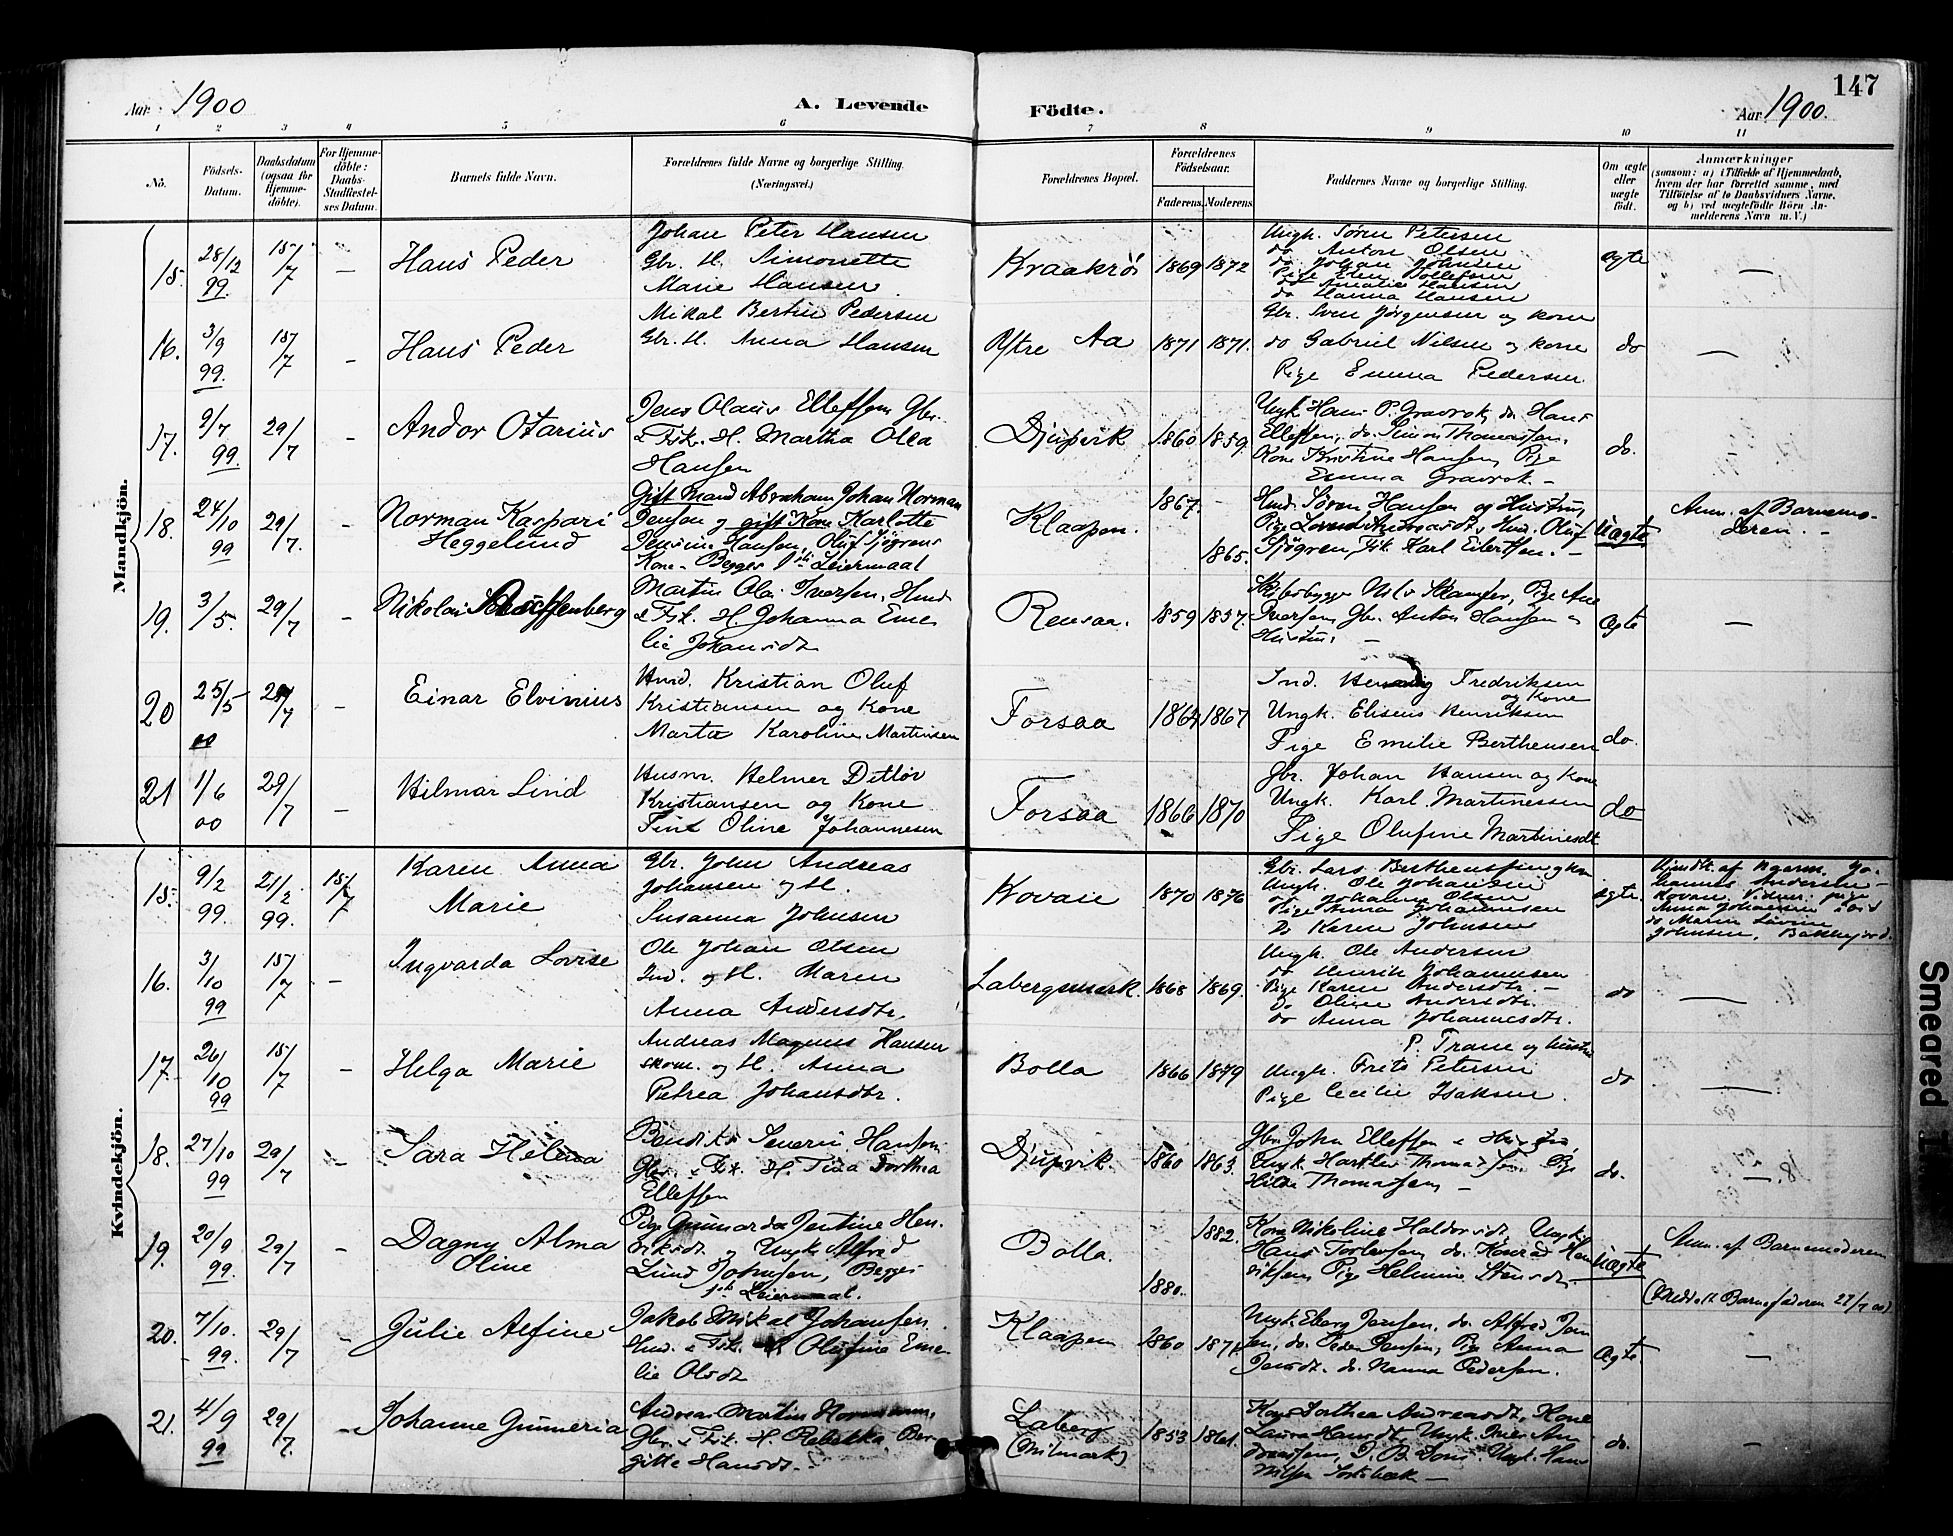 147
Aar 1900
A. Levende
Födte.
Aar 1900.
1 2 3 4 5 6 7 8 9 10 11
No.
Födsels-
Datum.
Daabsdatum
(ogsaa for
Hjemme-
döbte).
For Hjemme-
döbte:
Daabs-
Stadfæstel-
ses Datum.
Barnets fulde Navn.
Forældrenes fulde Navne og borgerlige Stilling.
(Næringsvei.)
Forældrenes Bopæl.
Forældrenes
Födselsaar.
Faderens. Moderens.
Faddernes Navne og borgerlige Stilling.
Om ægte
eller
uægte
födt.
Anmærkninger
(saasom: a) i Tilfælde af Hjemmedaab,
hvem der har forrettet samme, med
Tilföielse af to Daabsvidners Navne,
og b) ved uægtefödte Börn An-
melderens Navn m. V.)
Mandkjön.
15. 28/12 99. 15/7 – Hans Peder
Johan Peter Hansen
Gbr. H. Simonette
Marie Hansen.
Kraakrö 1869 1872
Ungk. Sören Petersen
do Anton Olsen
do Johan Johnsen
Pige Elen Tollefsen
do Amalie Hansen
do Hanna Hansen
ægte –
16. 3/9 99. 15/7 – Hans Peder
Mikal Bertin Pedersen
Gbr. H. Anna Hansen
Ytre Aa 1871 1871.
Gbr. Sven Jörgensen og kone
do Gabriel Nilsen og kone
Pige Emma Pedersen
do –
17. 9/7 99. 29/7 – Andor Otarius
Jens Olaus Ellefsen Gbr.
& Fisk. H. Martha Olea
Hansen
Djupvik 1860 1859.
Ungk. Hans P. Gravrok, do Hans
Ellefsen, do. Simon Thomassen,
Kone Kristine Hansen, Pige
Emma Gravrok –
do.
18. 24/10 99 29/7. – Norman Kaspari
Heggelund
Gift Mand Abraham Johan Norman
Jensen og gift Kone Karlotte
Jensine Hansen, Oluf Sjøgrens
Kone – Begges 1ste Leiermaal
Klaapen. 1867. 1865.
Hmd. Sören Hansen og Hustru,
Oluf
Sjøgren, Fisk. Karl Eilertsen. –
Uægte
Anm. af Barnemo-
deren. –
19. 3/5. 29/7 – Nikolai
Martin Olai Iversen, Hmd.
& Fisk. H. Johanna Eme
lie Johansdt.
Rensaa. 1859 1857.
Pige Ane
Iversen, Gbr. Anton Hansen &
Hustru. –
Ægte –
20 25/5 00 29/7 – Einar Elvinius
Hmd. Kristian Oluf
Kristiansen og Kone
Marta Karoline Martinsen
Forsaa 1864 1867
Ind. Henrig Fredriksen
og Kone
Ungk. Eliseus Henriksen
Pige Emilie Berthensen
do.
21 1/6 00 29/7 – Hilmar Lind
Husm. Helmer Detlev
Kristiansen og Kone
Fina Oline Johannesen
Forsaa 1866 1870
Gbr. Johan Hansen og Kone
Ungk. Karl Martinessen
Pige Olufine Martinesdt
do
Kvindekjön.
15. 9/2 99. 21/2 99. 15/7 Karen Anna
Marie
Gbr. John Andreas
Johansen og H.
Susanna Johnsen
Kovaii 1870 1876
Gbr. Lars
Ungk. Ole Johansen
do Johan Olsen
Pige Anna Johannesen
Do Karen Johnsen
ægte.
Hjmdt. af
hannes Andersen
Kovaii. Vidner: pige
Anna Johansen ibid
do Maren Lovise
Johnsen,
16. 3/10 99 15/7 – Ingvarda Lovise
Ole Johan Olsen
Ind. og H. Maren
Anna Andersdtr.
Labergsmark. 1868 1869.
Ungk. Ole Andersen
do Henrik Johannesen
Pige Karen Andersdtr. –
do Oline Andersdtr.
do Anna Johannesdtr.
do –
17. 26/10 99 15/7 – Helga Marie
Andreas Magnus Hansen
skom. og H. Anna
Petrea Johansdtr.
Bolla 1866 1879
P. Trane og hustru
Ungk. Frits Petersen
Pige Cecilie Isaksen.
do –
18. 27/10 99 29/7 – Sara Helena
Bendikt Severin Hansen
Gbr. & Fisk. H. Tina Dorthea
Ellefsen
Djupvik. 1860 1863.
Gbr. John Ellefsen & Hustru,
Ungk. Hartlev Thomassen. Pige
Hilda Thomassen –
do. –
19. 20/9 99. 29/7 – Dagny Alma
Oline
Pige Gunnarda Jentine Hen-
riksdt og Ungk. Alfred
Lund Johnsen, Begges
1ste Leiermaal.
Bolla. 1882. 1880.
Kone Nikoline Haldorsdt, Ungk.
Hans Torlevsen, do. Konrad Hen
riksen, Pige Helmine Stensdt. –
Uægte
Anm. af Barnemoderen
(Medd. t. Barnefaderen 27/7 00)
20. 7/10. 99. 29/7 – Julie Alfine
Jakob Mikal Johansen
Hmd. & Fisk. H. Olufine Eme
lie Olsdt
Klaapen 1860 1871.
Ungk. Eberg Jensen, do. Alfred Jen
sen, do. Peder Jensen, Pige Anna
Jensdt. do. Nanna Pedersen.
Ægte. –
21. 4/9 99 29/7. – Johanne Gunneria
Andreas Martin
Gbr. & Fisk. H. Rebekka Ber
gitte Hansdt.
Laberg
(Milmark) 1853 1861.
Kone Dorthea Andreasdt, Kone
Laura Hansdt, Ungk. Peder An
dreassen,
do. –
Smeared